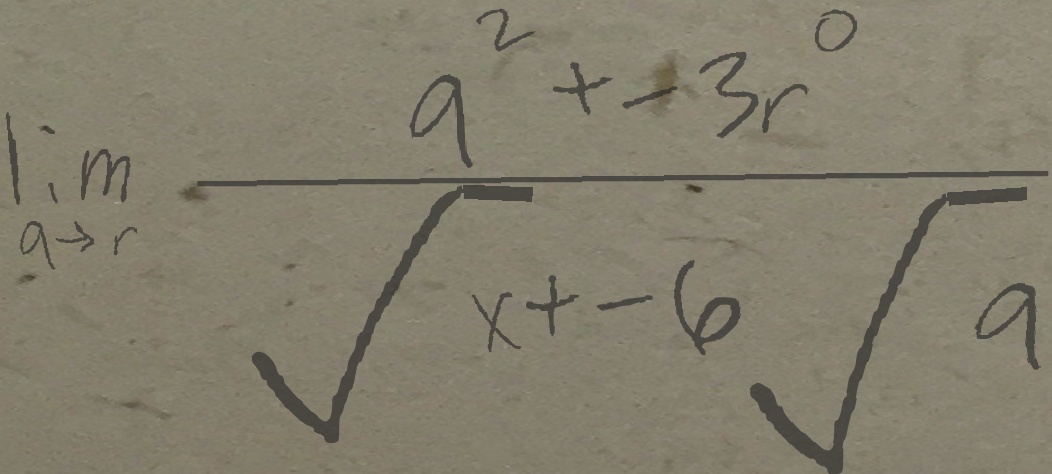 \lim_{a \to r} \frac{a^2 + -3r^0}{\sqrt{x} + -6\sqrt{a}}